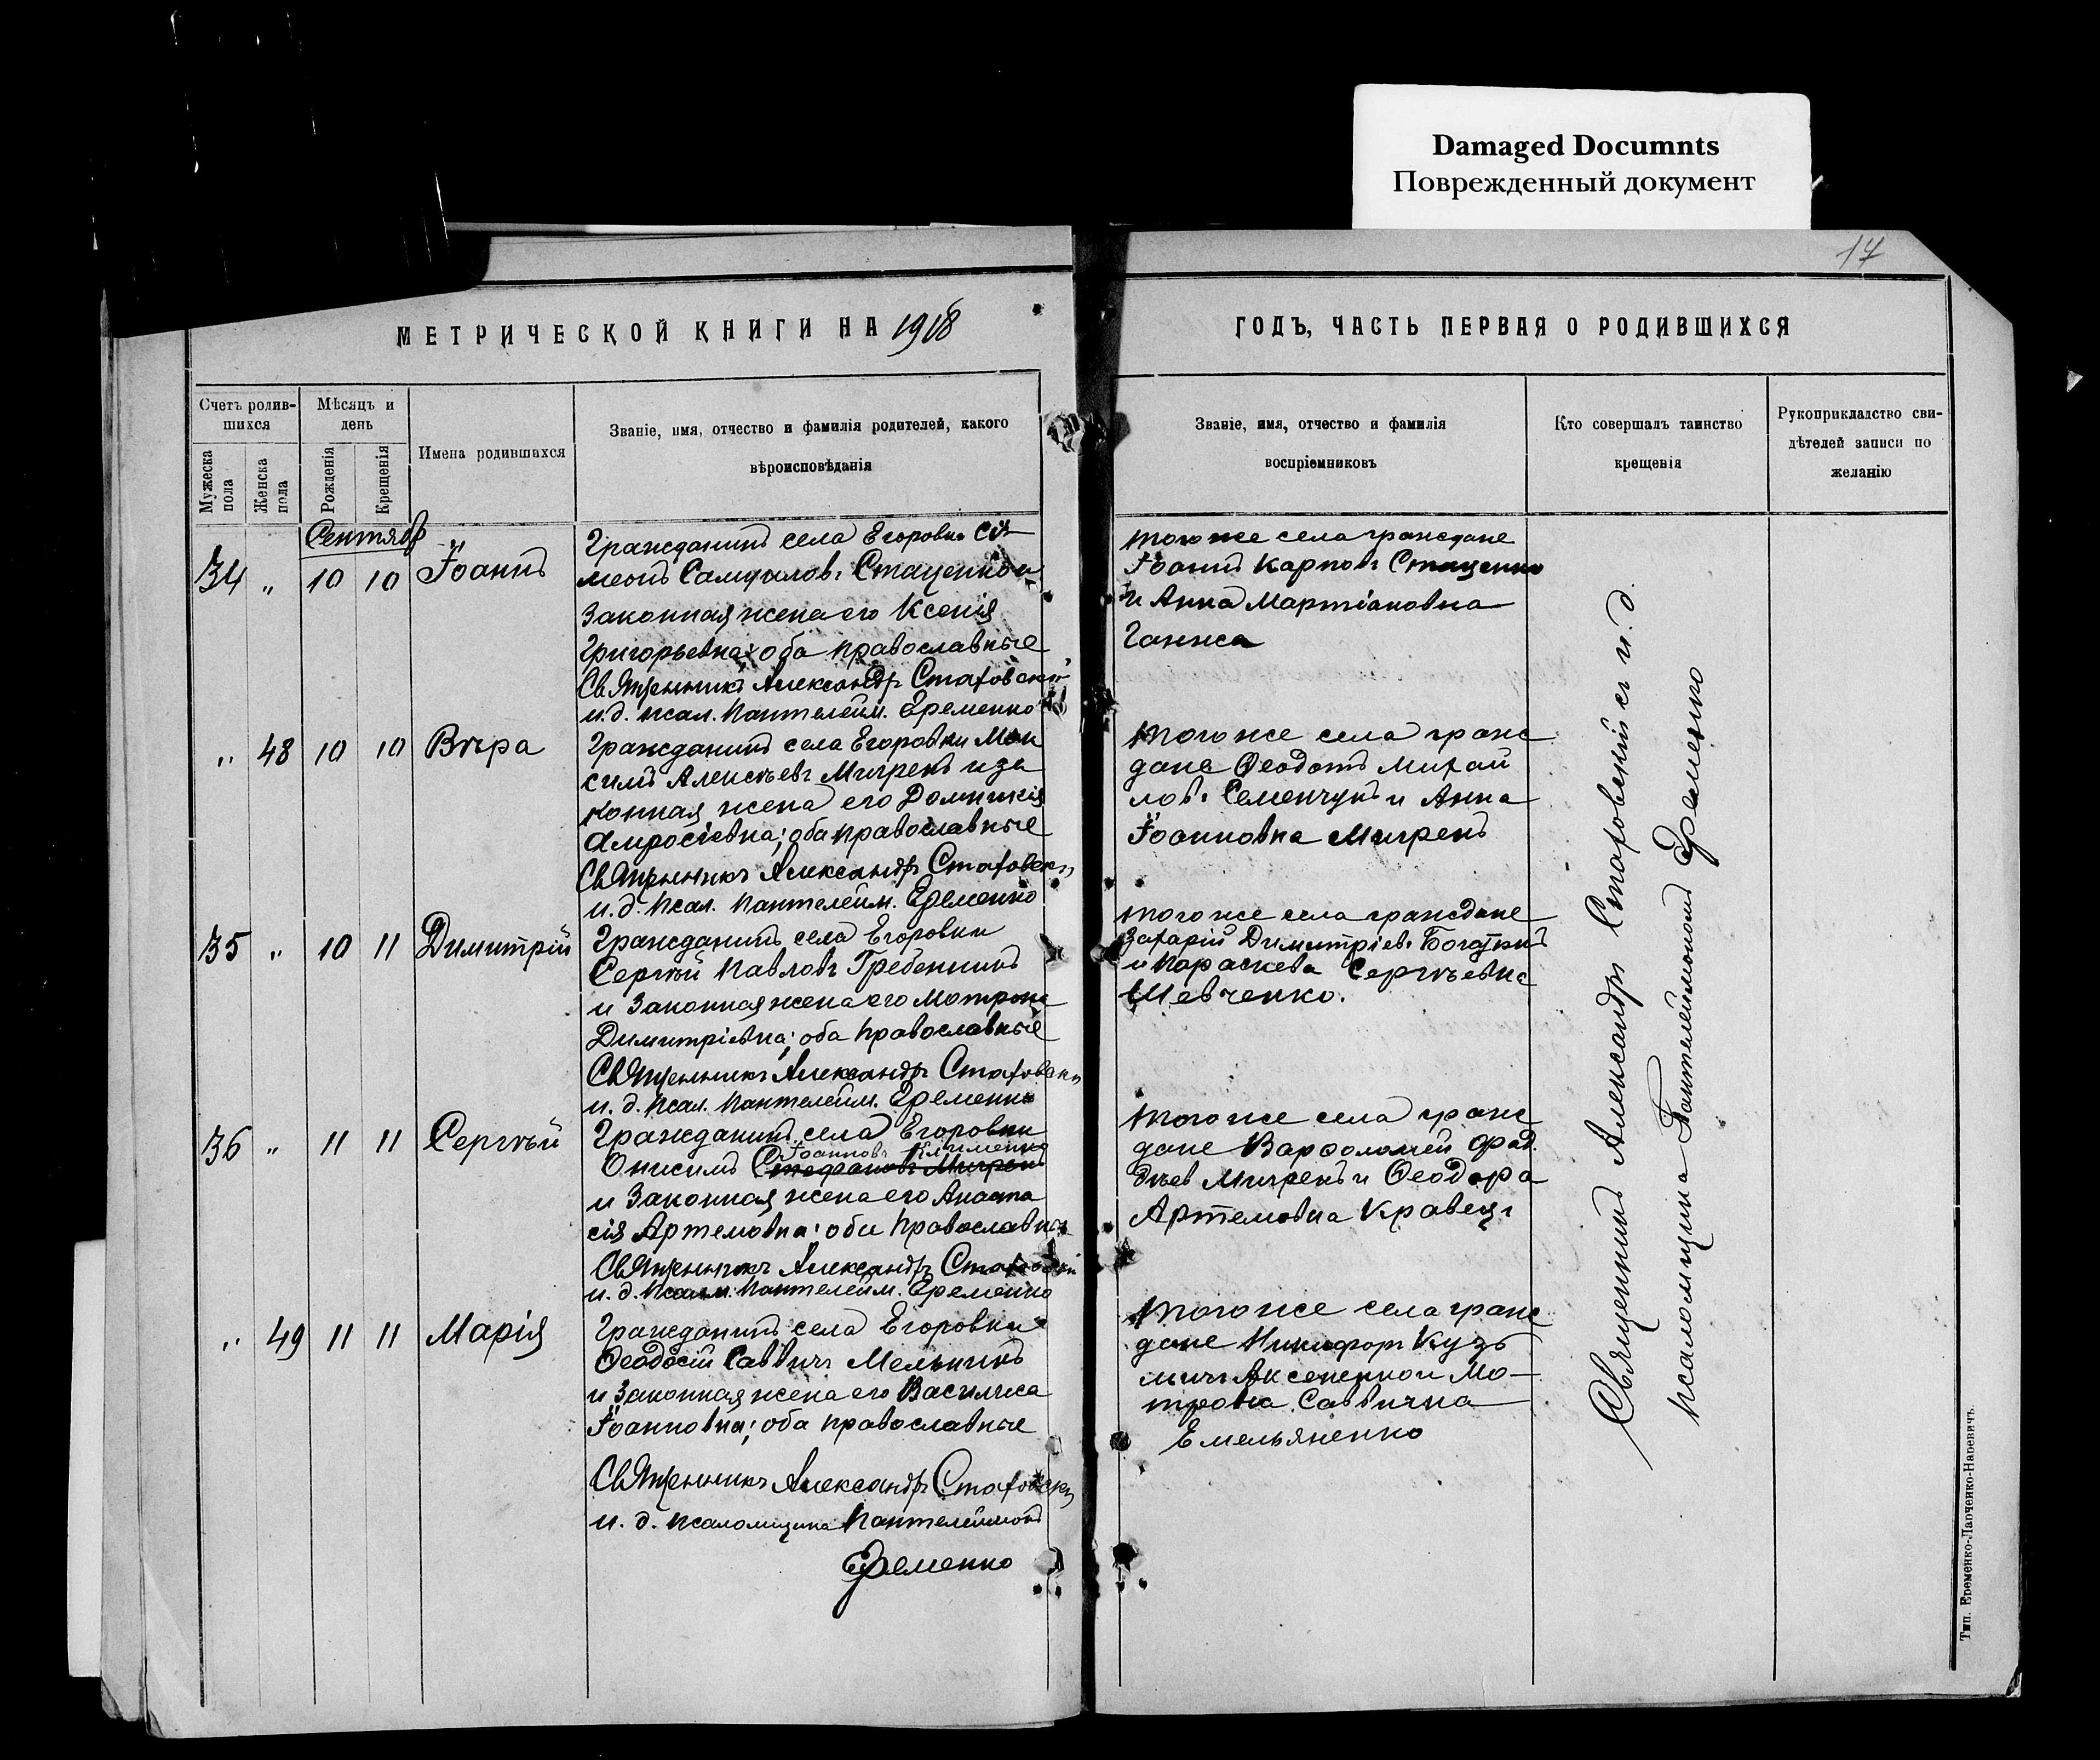 Damaged Documnts
Поврежденный документ
17
МЕТРИЧЕСКОЙ КНИГИ НА 1918
ГОДЪ, ЧАСТЬ ПЕРВАЯ О РОДИВШИХСЯ
Счетъ родив-
шихся
Мужеска
пола
Женска
пола
Мѣсяцъ и
день
Рожденія
Крещенія
Имена родившихся
Званіе, имя, отчество и фамилія родителей, какого
вѣроисповѣданія
Званіе, имя, отчество и фамилія
воспріемниковъ
Кто совершалъ таинство
крещенія
Рукоприкладство сви-
дѣтелей записи по
желанію
Сентябр
34 „ 10 10 Іоаннъ
Гражданинъ села Егоровки Си
меонъ Самуилов. Стаценко и
Законная жена его Ксенія
Григорьевна; оба православные
Священникъ Александръ Стаховскій
и. д. псал. Пантелейм. Еременко
того же села граждане
Іоаннъ Карповъ Стаценко
и Анна Мартіановна
Ганжа
„ 48 10 10 Вѣра
Гражданинъ села Егоровки Мак
симъ Алексѣевъ Мигрень и за
конная жена его Домникія
Амросіевна; оба православные
Священникъ Александръ Стаховскі
и. д. псал. Пантелейм. Еременко
того же села граж
дане Ѳеодотъ Михай
лов. Семенчукъ и Анна
Іоанновна Мигрень
35 „ 10 11 Димитрій
Гражданинъ села Егоровки
Сергѣй Павловъ Гребенникъ
и Законная жена его Матрона
Димитріевна; оба православные
Священникъ Александръ Стаховскі
и. д. псал. Пантелейм. Еременко
того же села граждане
Захарій Димитріев.
и Параскева Сергѣевна
Шевченко.
36 „ 11 11 Сергѣй
Гражданинъ села Егоровки
Іоанновъ Клименко
Онисимъ Стефановъ Мигрень
и Законная жена его Анаста
сія Артемовна; оби православные
Священникъ Александръ Стаховскі
и. д. Псалм. Пантелейм. Еременко
того же села граж
дане Варѳоломей Фад
дѣев Мигрень и Ѳеодора
Артемовна Кравецъ
„ 49 11 11 Марія
Гражданинъ села Егоровки
Ѳеодосій Саввичъ Мельникъ
и Законная жена его Василиса
Іоанновна; оба православные
Священникъ Александръ Стаховскі
и. д. псаломщика Пантелеймонъ
Еременко
того же села граж
дане Никифоръ Кузь
мичъ Аксененко и Мо-
трона Саввична
Емельяненко
Священникъ Александръ Стаховскій съ и. д.
псаломщика Пантелеймономъ Еременко
Тип. Еременко-Ларченко-Наревичъ.